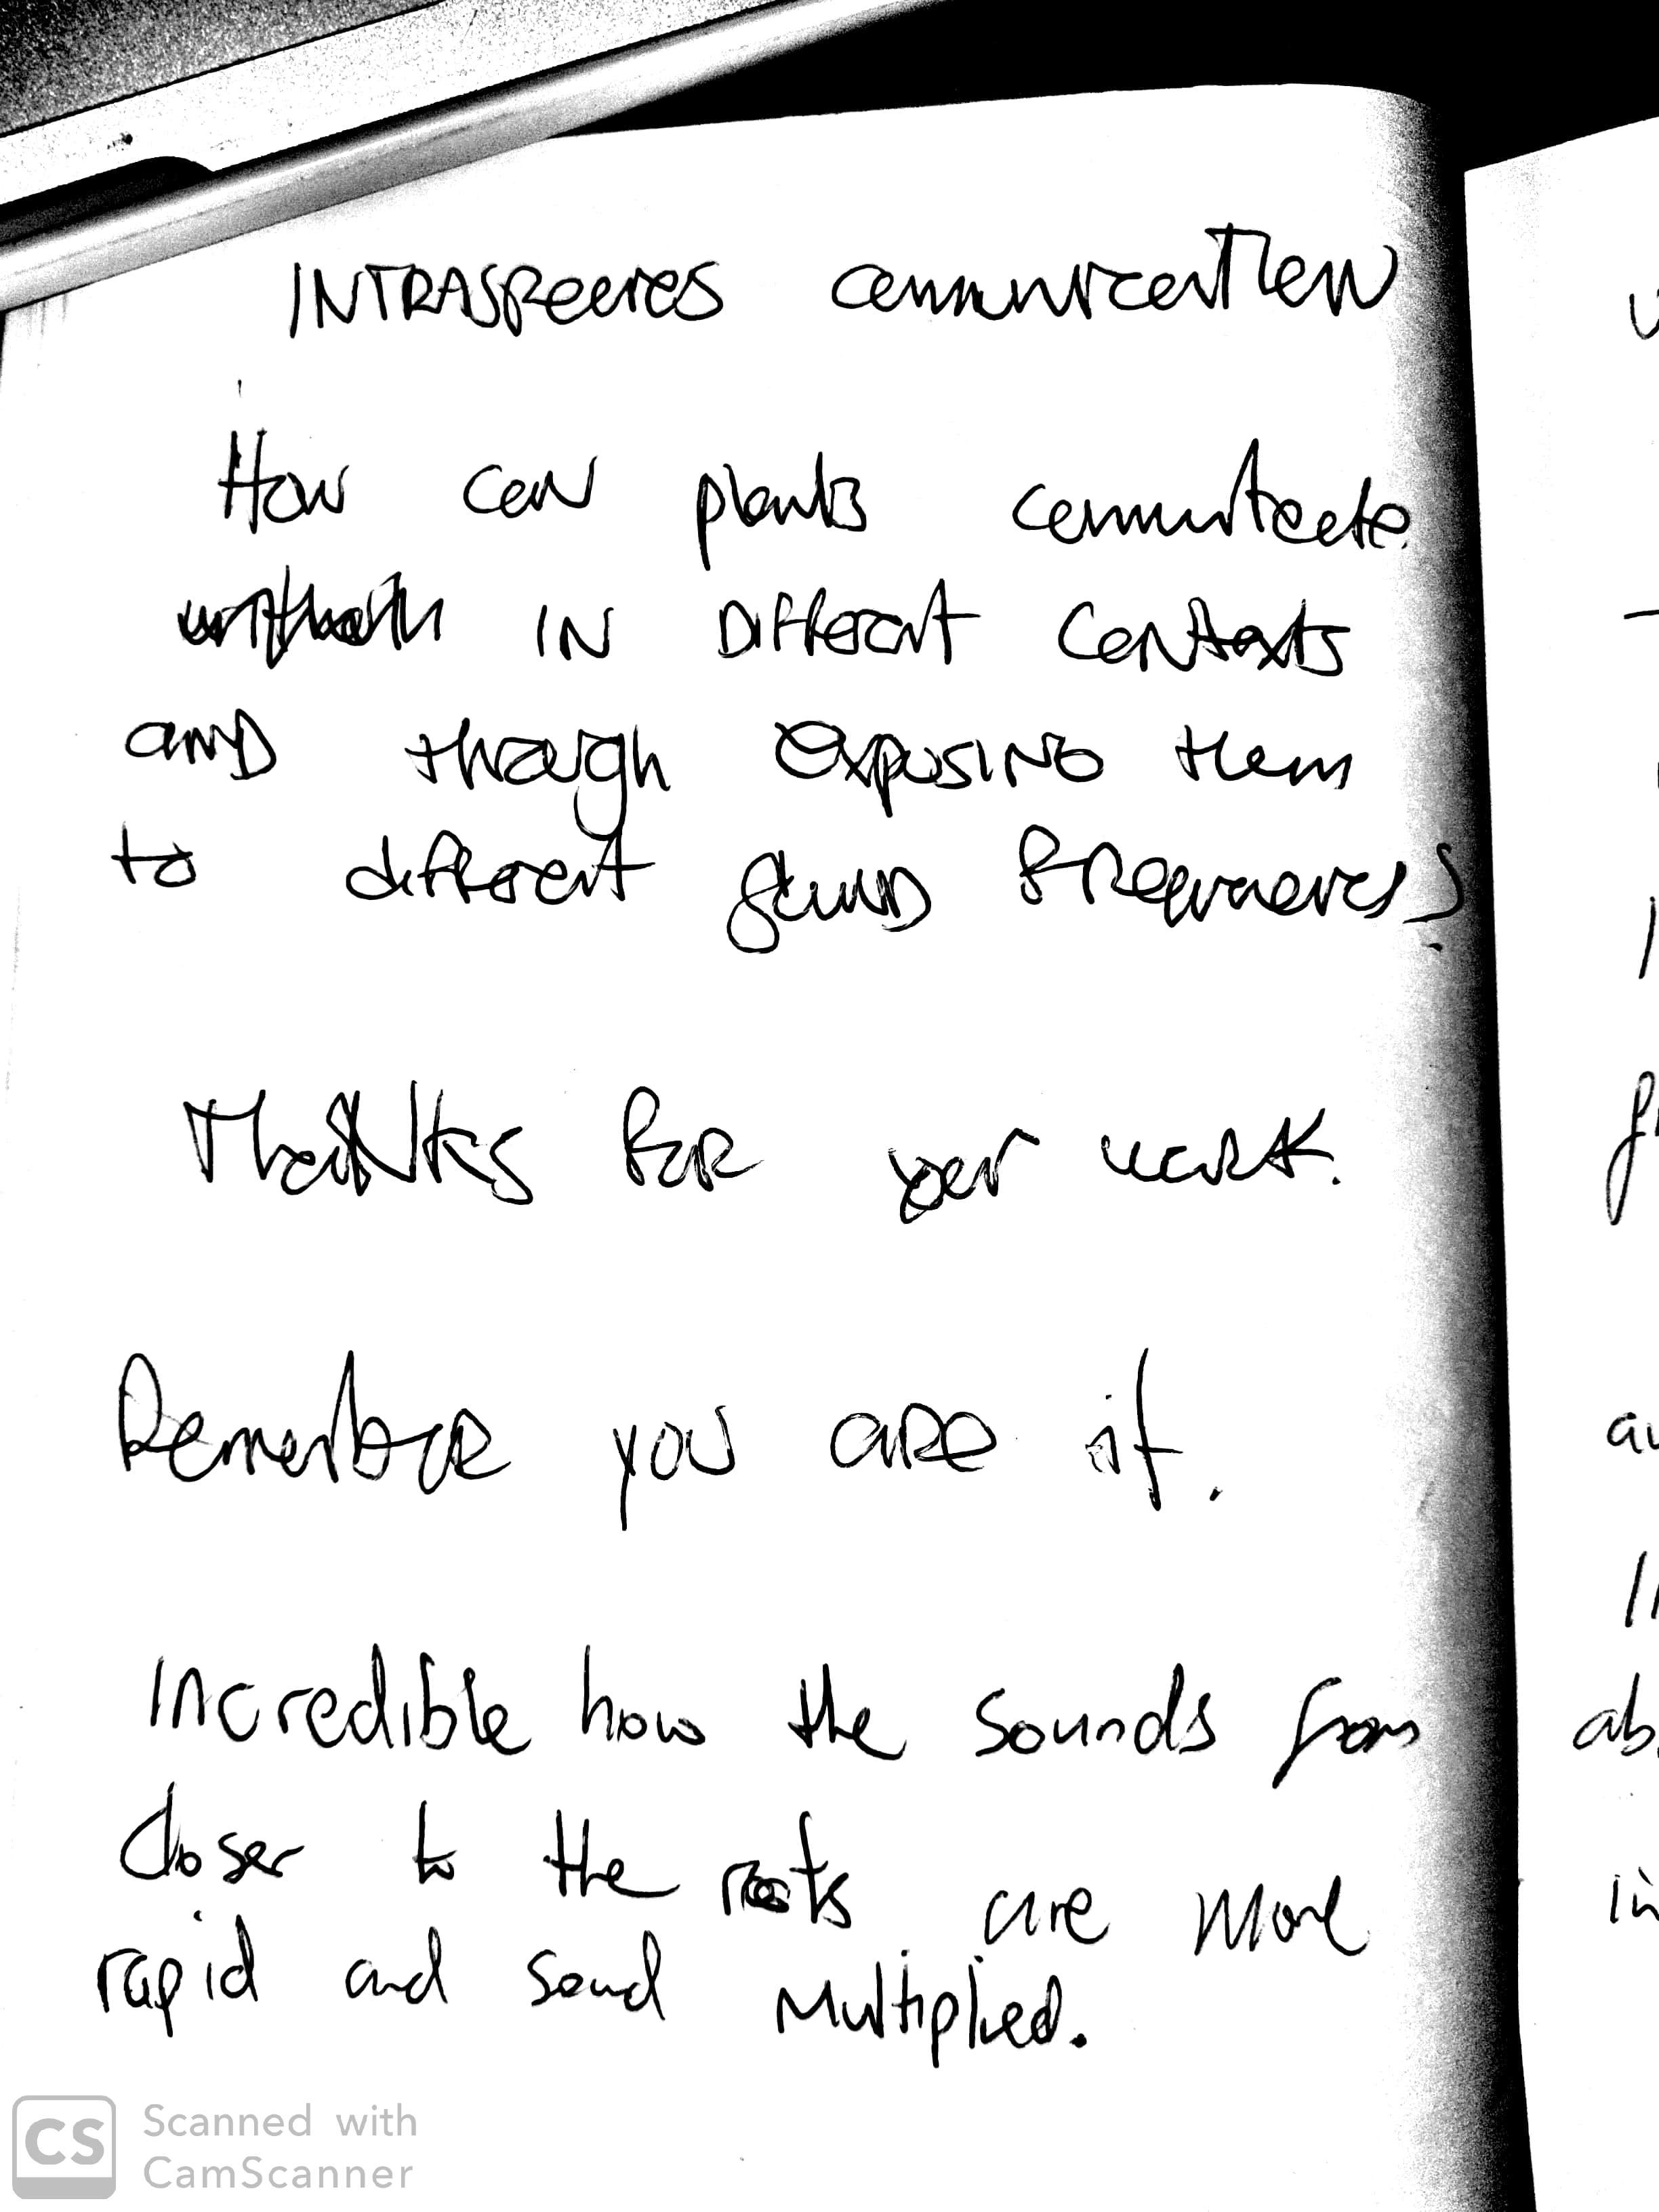 INTRASPECIES communication
How can plants communicate
in different contexts
and through exposing them
to different sound frequencies?
Thanks for your work.
Remember you are it.
Incredible how the sounds from
closer to the roots are more
rapid and sound multiplied.
CS Scanned with
CamScanner